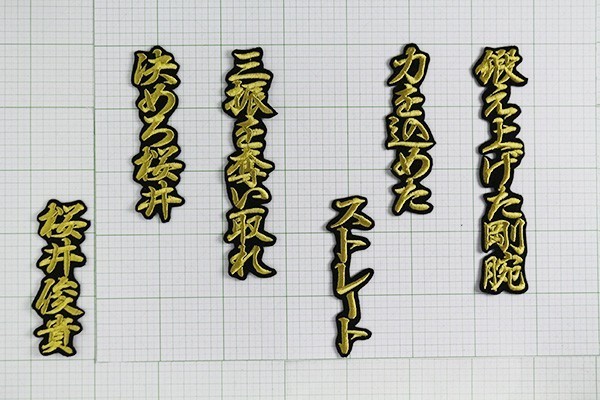 鍛え上げた剛腕
力を込めた
ストレート
三振を奪い取れ
決めろ桜井
桜井俊貴